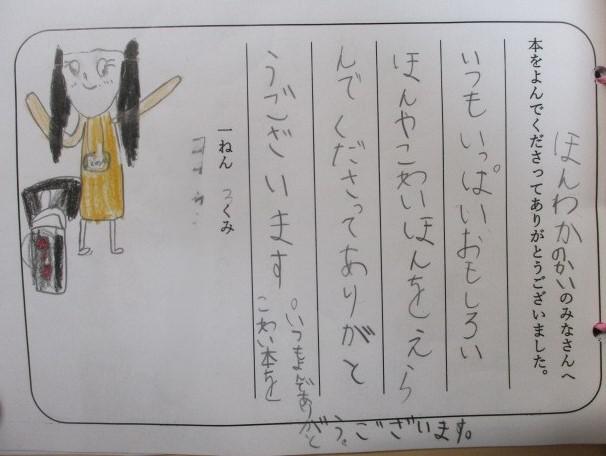 ほんわかのかいのみなさんへ
本をよんでくださってありがとうございました。
いつもいっぱいおもしろい
ほんやこわいほんをえら
んでくださってありがと
うございます。いつもよんであり
こわい本を
がとう。ございます。
一ねん 3くみ